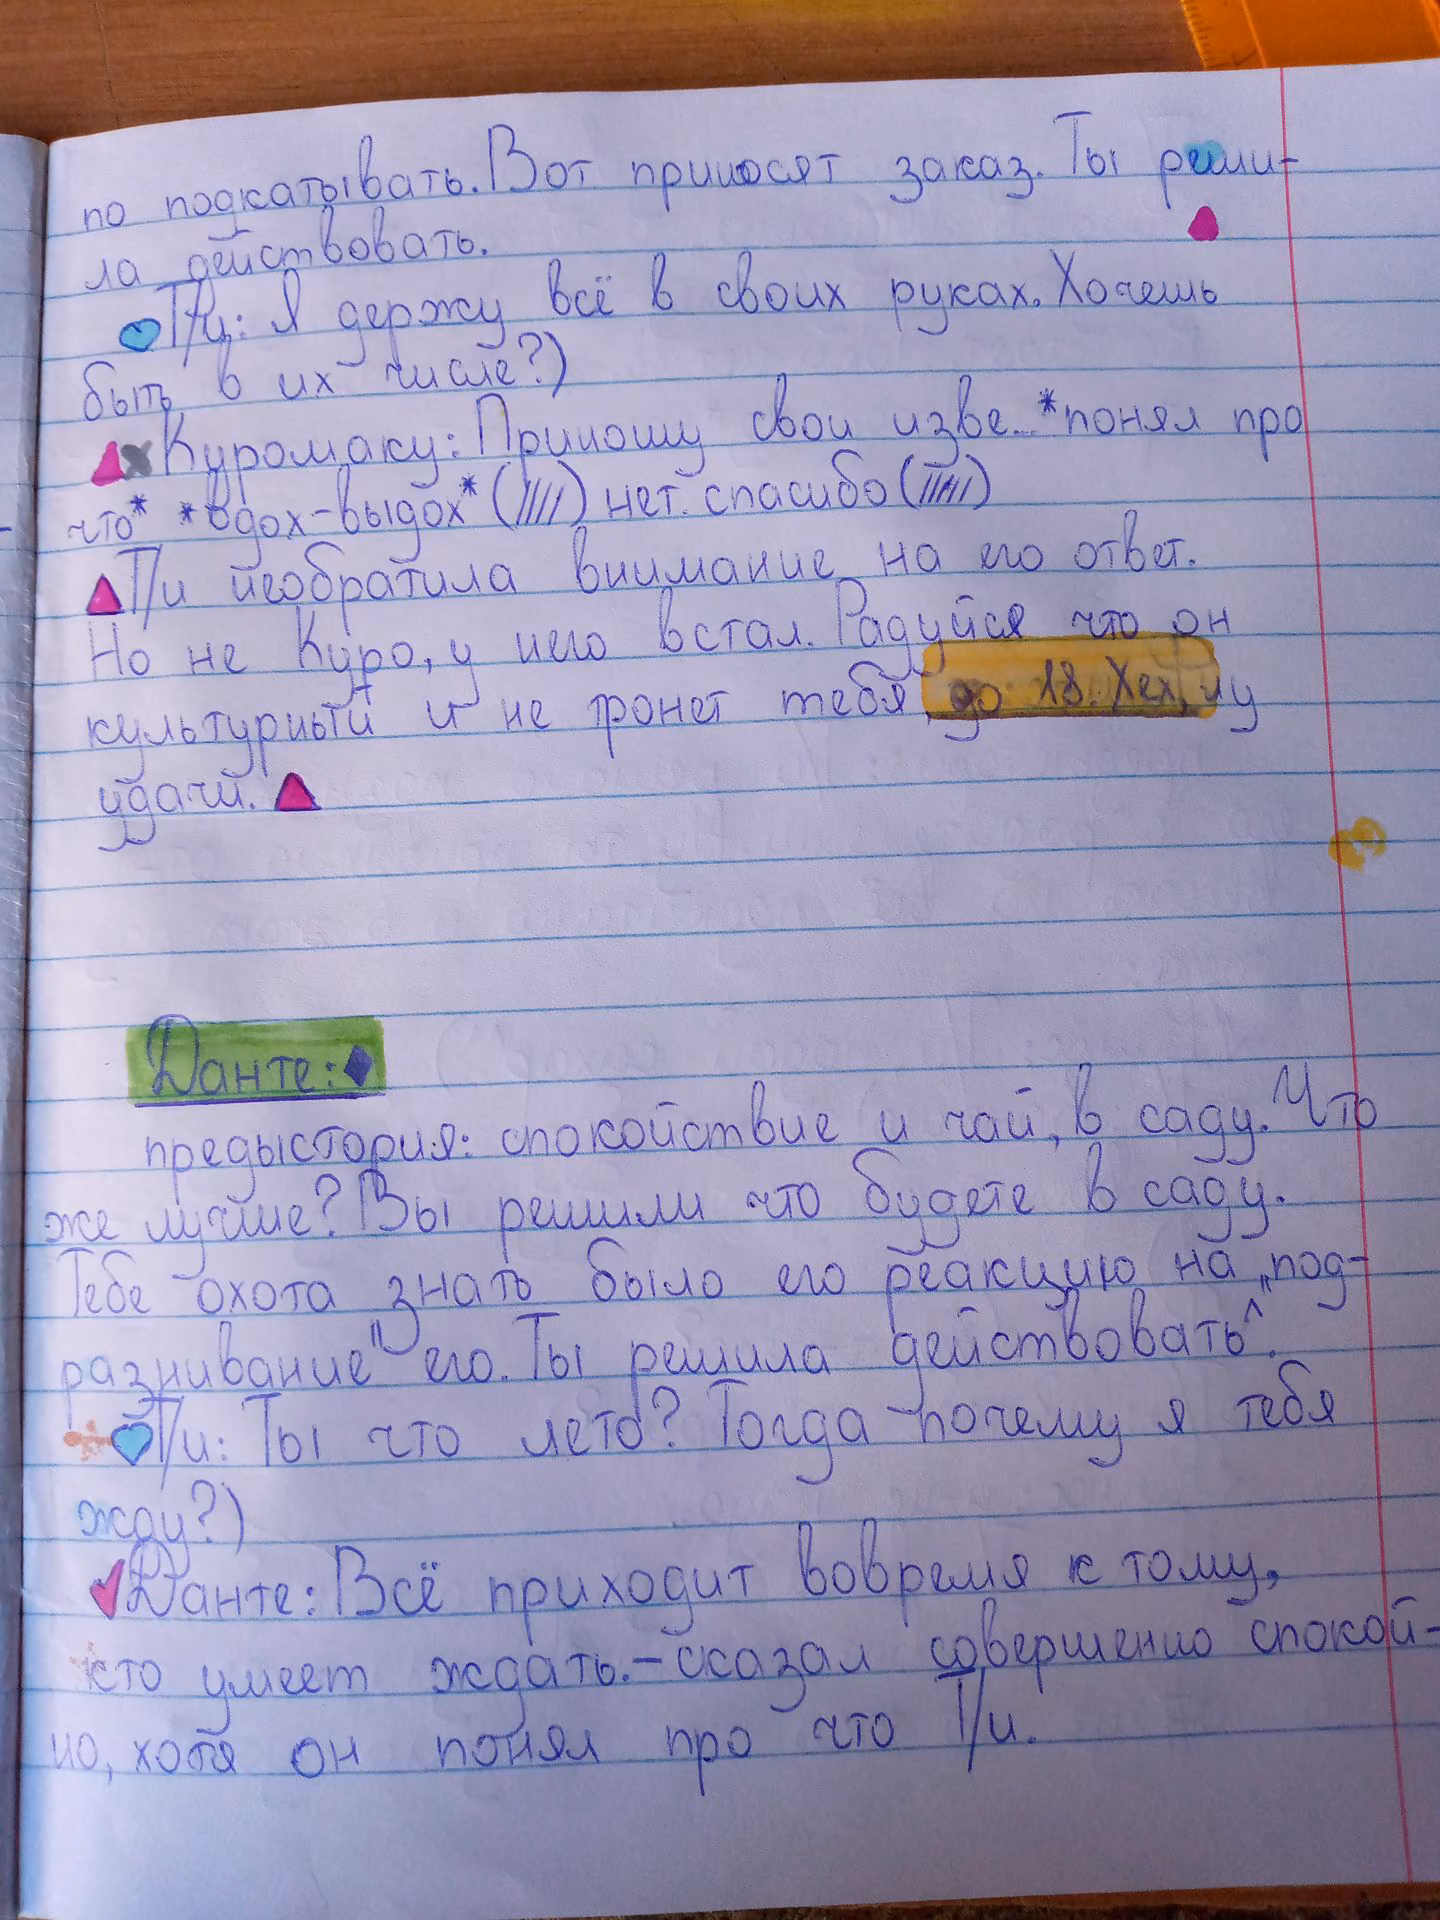 по подкатывать. Вот приносят заказ. Ты реши-
ла действовать.
Т/и: Я держу всё в своих руках. Хочешь
быть в их числе?)
Куромаку: Приношу свои изве... *понял про
что* *вдох-выдох* (////) нет. спасибо (////)
Т/и необратила внимание на его ответ.
Но не Куро, у него встал. Радуйся что он
культурный и не тронет тебя до 18. Хех, ну
удачи.
Данте:
предыстория: спокойствие и чай, в саду. Что
же лучше? Вы решили что будете в саду.
Тебе охота знать было его реакцию на „под-
разнивание" его. Ты решила действовать^^.
Т/и: Ты что лето? Тогда почему я тебя
жду?)
Данте: Всё приходит вовремя к тому,
кто умеет ждать. – сказал совершенно спокой-
но, хотя он понял про что Т/и.